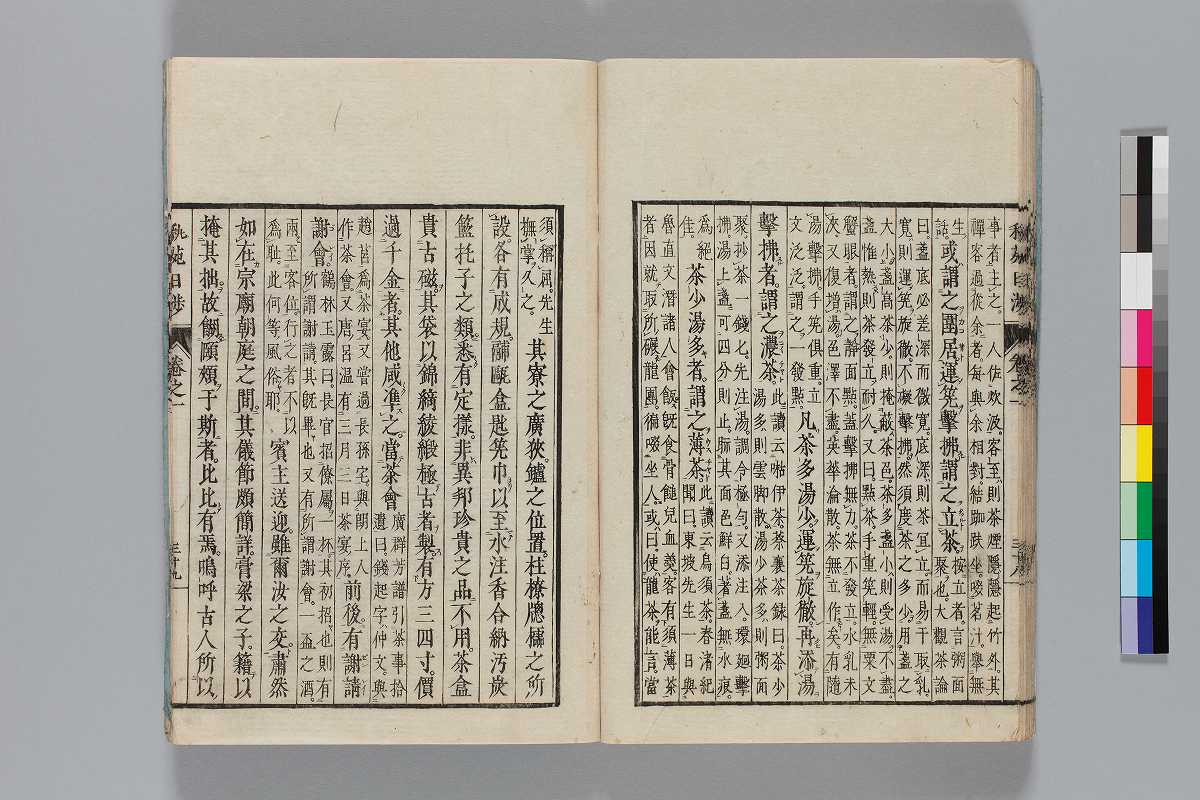 事者主之。一人佐炊汲。客至則茶煙隱隱起竹外。其
禪客過從余者每與余相對。結跏趺坐。啜茗汁。擧無
生
話。或謂之團居運筅擊拂謂之立茶
按立者。言粥面
聚也。大觀茶論
曰。盞底必差深而微寬。底深則茶宜立。而易于取乳。
寬則運筅旋徹。不礙擊拂。然須度茶之多少。用盞之
大小。盞高茶少。則掩蔽茶色。茶多盞小。則受湯不盡。
盞惟熱。則茶發立耐久。又曰。點茶手重筅輕。無粟文
蟹眼者。謂之靜面點。蓋擊拂無力。茶不發立。水乳未
浹。又復增湯。色澤不盡。英華淪散。茶無立作矣。有隨
湯擊拂。手筅俱重。立
文泛泛。謂之一發點。凡茶多湯少。運筅旋徹。再添湯
擊拂者。謂之濃茶。
此讀云
茶襄茶録曰。茶少
湯多則雲脚散。湯少茶多則粥面
聚。抄茶一錢匕。先注湯。調令極勻。又添注入。環廻擊
拂。湯上盞可四分則止。眎其面色鮮白。著盞無水痕。
爲絕
佳。茶少湯多者。謂之薄茶。
此讀云
烏須茶。春渚紀
聞曰。東坡先生一日與
魯直文潛諸人會飯。既食骨䭔兒血羹。客有須薄茶
者。因就取所碾龍團。徧啜坐人。或曰。使龍茶能言。當
須稱屈。先生
撫掌久之。其寮之廣狹。鑪之位置。柱橑牕櫺之所
設。各有成規。
盒匙筅巾。以至水注香合
炭
籃托子之類。悉有定樣。非異邦珍貴之品不用。茶盒
貴古磁。其袋以錦綺綾緞極古者製。有方三四寸。價
過千金者。其他咸準之。當茶會
廣群芳譜引茶事拾
遺曰。錢起字仲文。與
趙莒爲茶宴。又嘗過長孫宅。與朗上人
作茶會。又唐呂温有三月三日茶宴序。前後有謝請
謝會。
鶴林玉露曰。長官招僚屬。一杯其初招也。則有
所謂謝請。其既畢也。又有所謂謝會。一盃之酒。
兩至客位。行之者不以
爲耻。此何等風俗耶。賓主送迎。雖爾汝之交。肅然
如在宗廟朝庭之間。其儀節頗簡詳。膏粱之子。籍以
掩其拙。故餬頤頰于斯者。比比有焉。嗚呼古人所以
秇苑日涉
卷之一
三十九